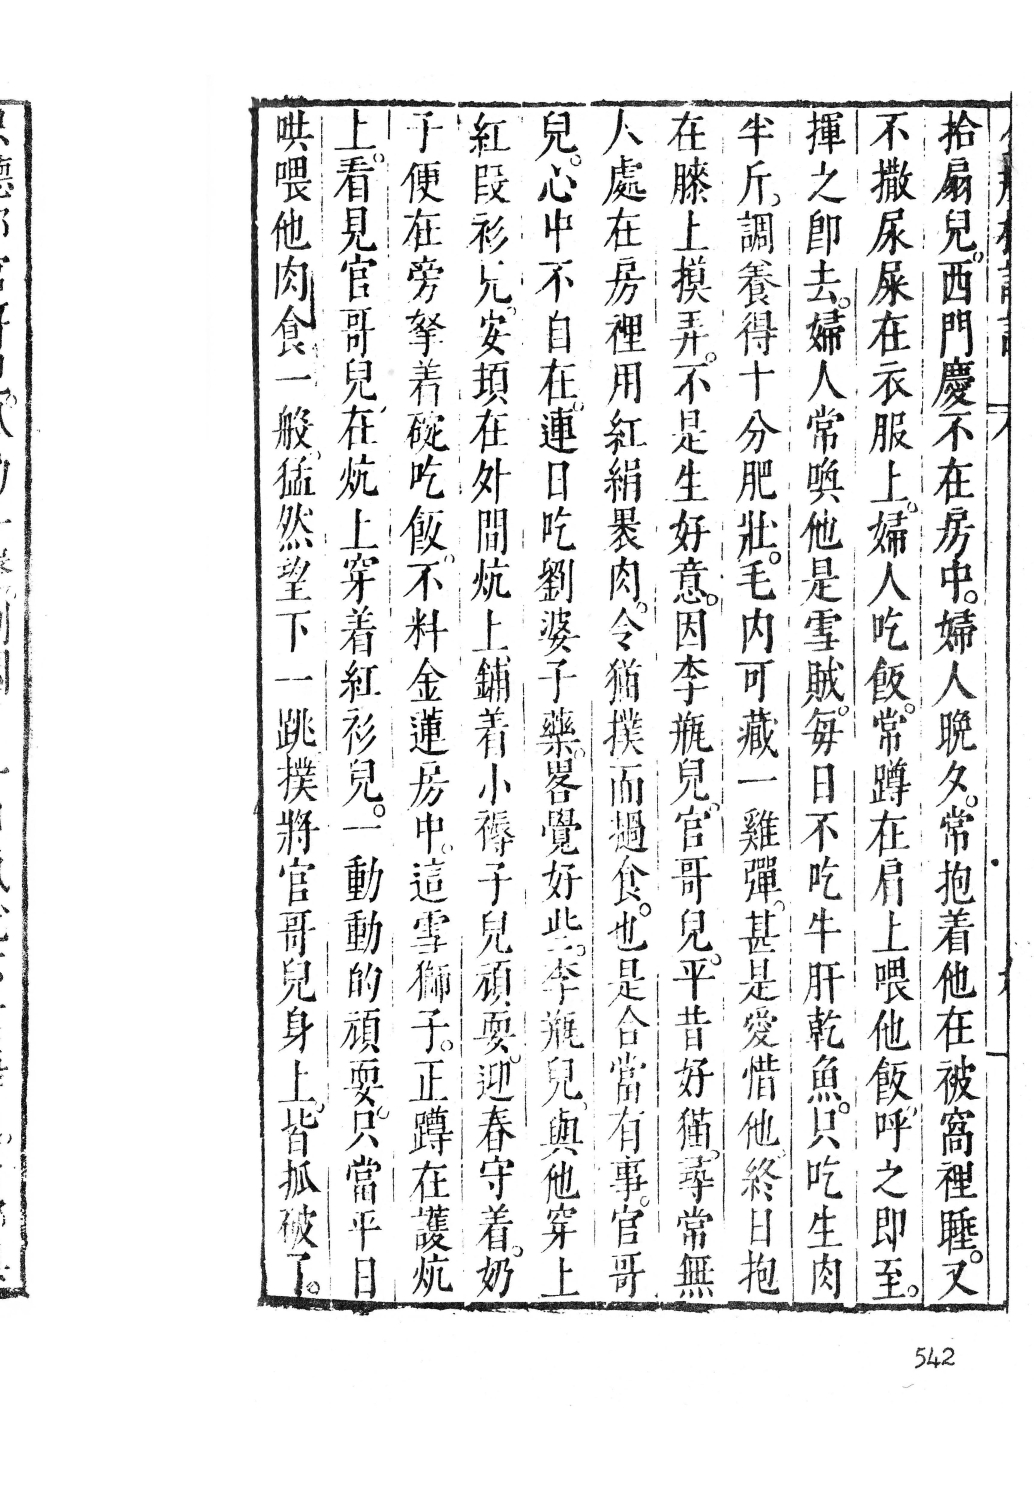 拾扇兒。西門慶不在房中。婦人晚夕。常抱着他在被窩裡睡。又
不撒尿屎在衣服上。婦人吃飯。常蹲在肩上喂他飯。呼之即至。
揮之卽去。婦人常喚他是雪賊。每日不吃牛肝乾魚。只吃生肉
半斤。調養得十分肥壯。毛内可藏一雞彈。甚是愛惜他。終日抱
在膝上摸弄。不是生好意。因李瓶兒。官哥兒。平昔好猫。尋常無
人處在房裡用紅絹褁肉。令猫撲而撾食。也是合當有事。官哥
兒。心中不自在。連日吃劉婆子藥。畧覺好些。李瓶兒。與他穿上
紅段衫兒。安頓在外間炕上。鋪着小褥子兒頑耍。迎春守着。奶
子便在旁拏着碗吃飯。不料金蓮房中。這雪獅子。正蹲在護炕
上。看見官哥兒。在炕上穿着紅衫兒。一動動的頑耍。只當平日
哄喂他肉食一般。猛然望下一跳。撲將官哥兒身上。皆抓破了。
542